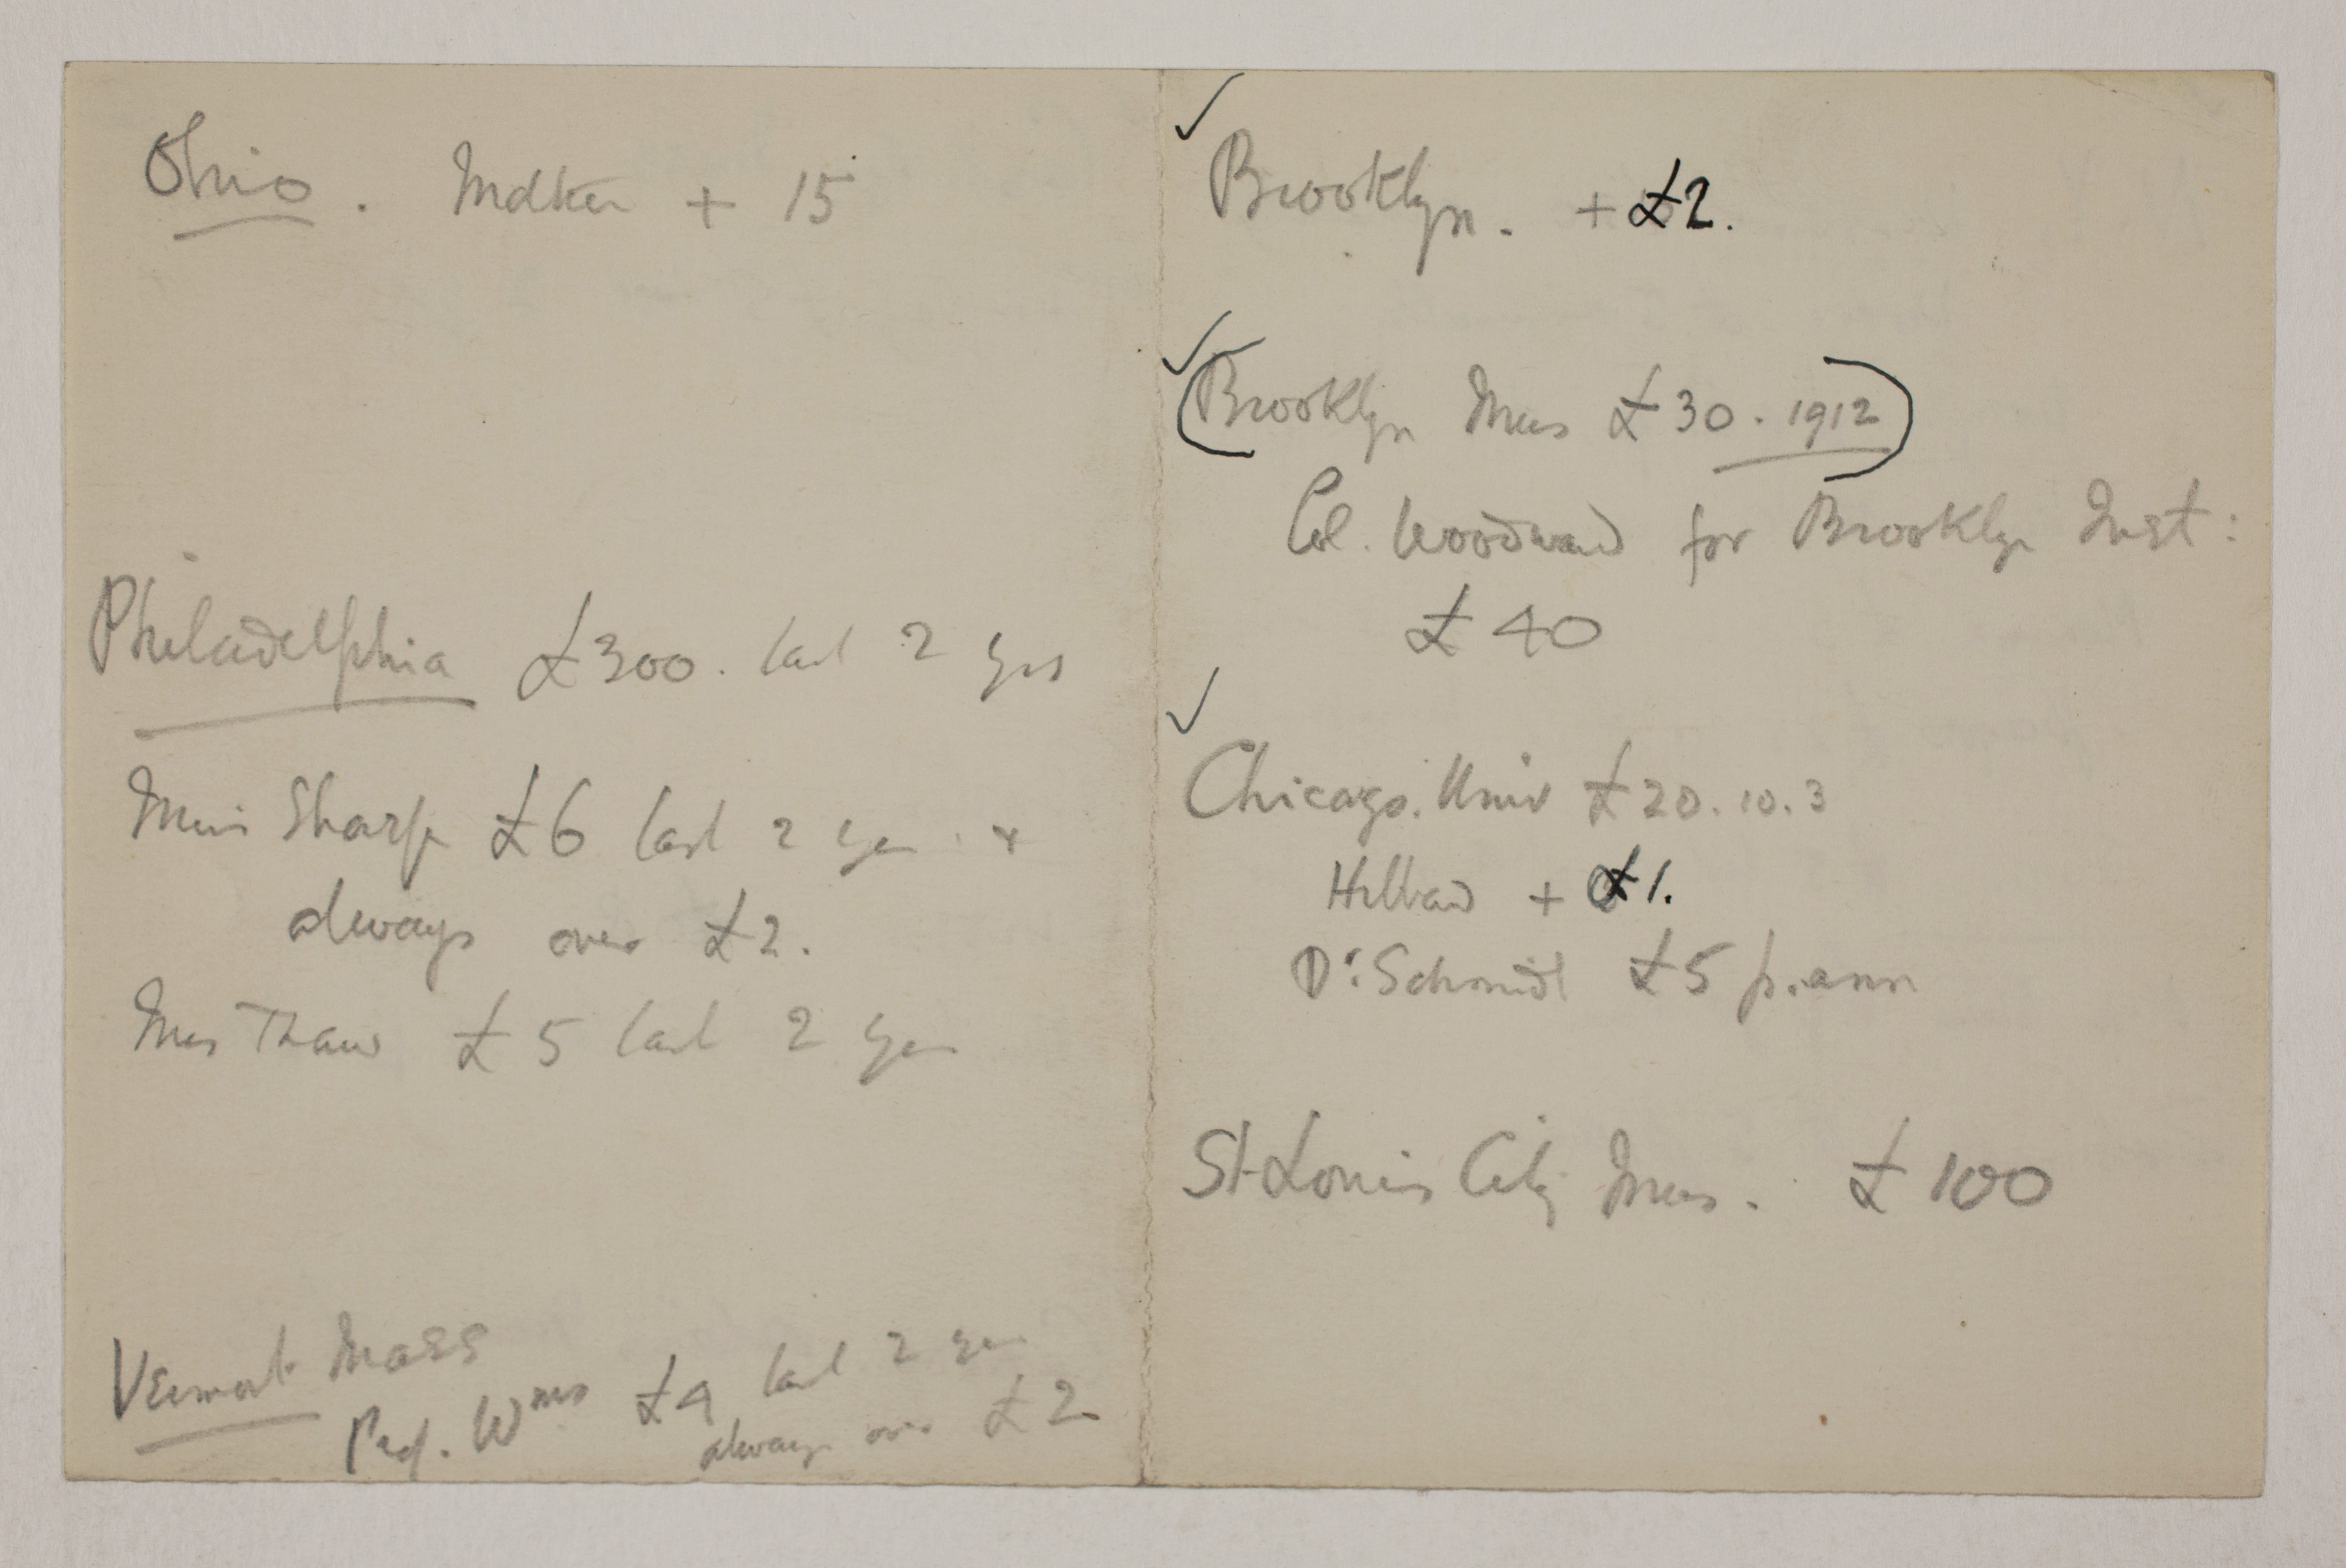 Ohio. + 15
Philadelphia £300. last 2 yrs
Miss Sharp £6 last 2 yrs. &
always over £2.
Mrs Thaw £5 last 2 yrs
Vermont Mass
Prof. Wms £4 last 2 yrs
always over £2
✓
Brooklyn. + £2.
✓
(Brooklyn Mus £30. 1912)
Col. Woodward for Brooklyn Inst:
£40
✓
Chicago. Univ £20.10.3
+ £1.
Dr: Schmidt £5 p.ann
St Louis City Mus. £100